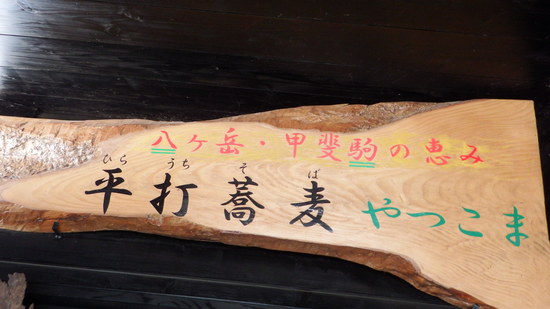 八ヶ岳・甲斐駒の恵み
ひら うち そ ば
平打蕎麦 やつこま